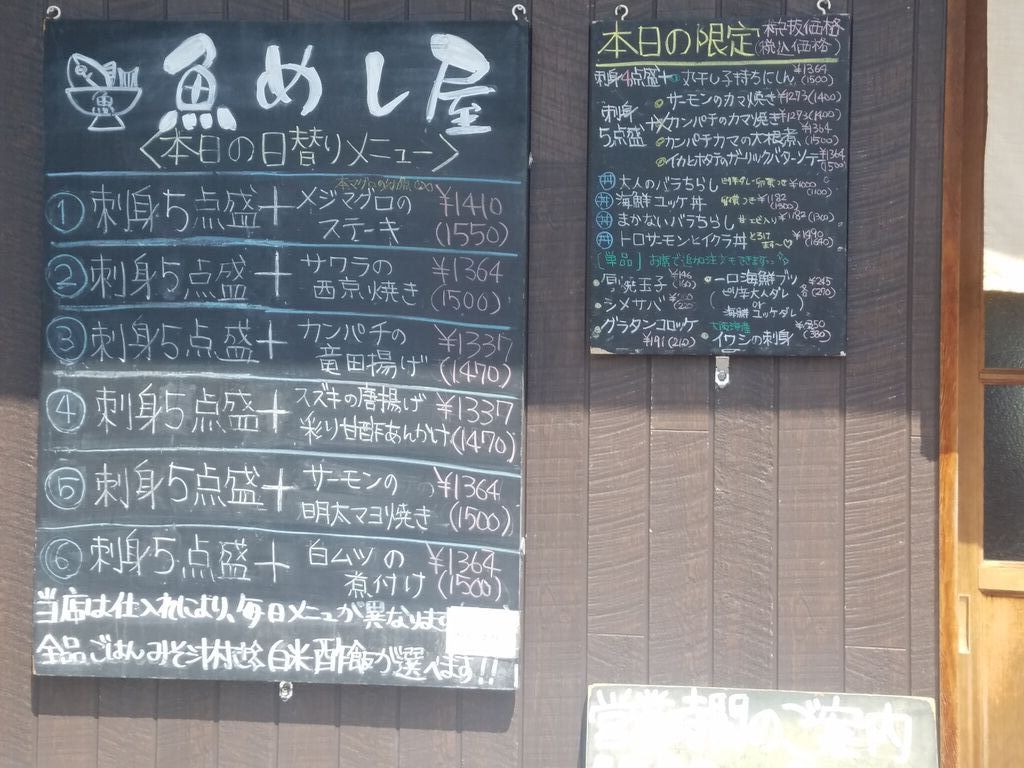 魚めし屋
魚
<本日の日替りメニュー>
① 刺身5点盛+ メジマグロのステーキ ¥1410 (1550)
② 刺身5点盛+ サワラの西京焼き ¥1364 (1500)
③ 刺身5点盛+ カンパチの竜田揚げ ¥1337 (1470)
④ 刺身5点盛+ スズキの唐揚げ彩り甘酢あんかけ ¥1337 (1470)
⑤ 刺身5点盛+ サーモンの明太マヨ焼き ¥1364 (1500)
⑥ 刺身5点盛+ 白ムツの煮付け ¥1364 (1500)
当席は仕入れにより、毎日メニュが異なります
全品ごはんみそ汁付き 白米酢飯が選べます!!
本日の限定 税抜価格 (税込価格)
刺身4点盛+ 丸干し子持にしん ¥1364 (1500)
刺身5点盛+
サーモンのカマ焼き ¥1273 (1400)
カンパチのカマ焼き ¥1273 (1400)
カンパチカマの大根煮 ¥1364 (1500)
イカとホタテのガーリックバターソテー ¥1364 (1500)
丼 大人のバラちらし ¥1000 (1100)
丼 海鮮ユッケ丼 ¥1182 (1300)
丼 まかないバラちらし ¥1182 (1300)
丼 トロサーモンとイクラ丼 とろけます~♡ ¥1490 (1640)
[単品] お席で追加注文もできます
シメサバ
グラタンコロッケ ¥191 (210)
一口海鮮ブツ ¥245 (270)
ピリ辛大人ダレ
or
海鮮ユッケダレ
イワシの刺身 ¥350
営業時間のご案内